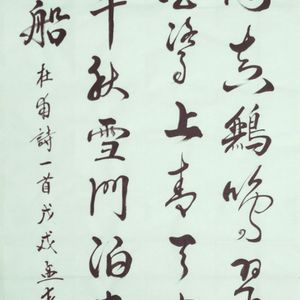 黃鸝鳴翠
白鷺上青天
千秋雪門泊
船
杜甫詩一首戊戌孟